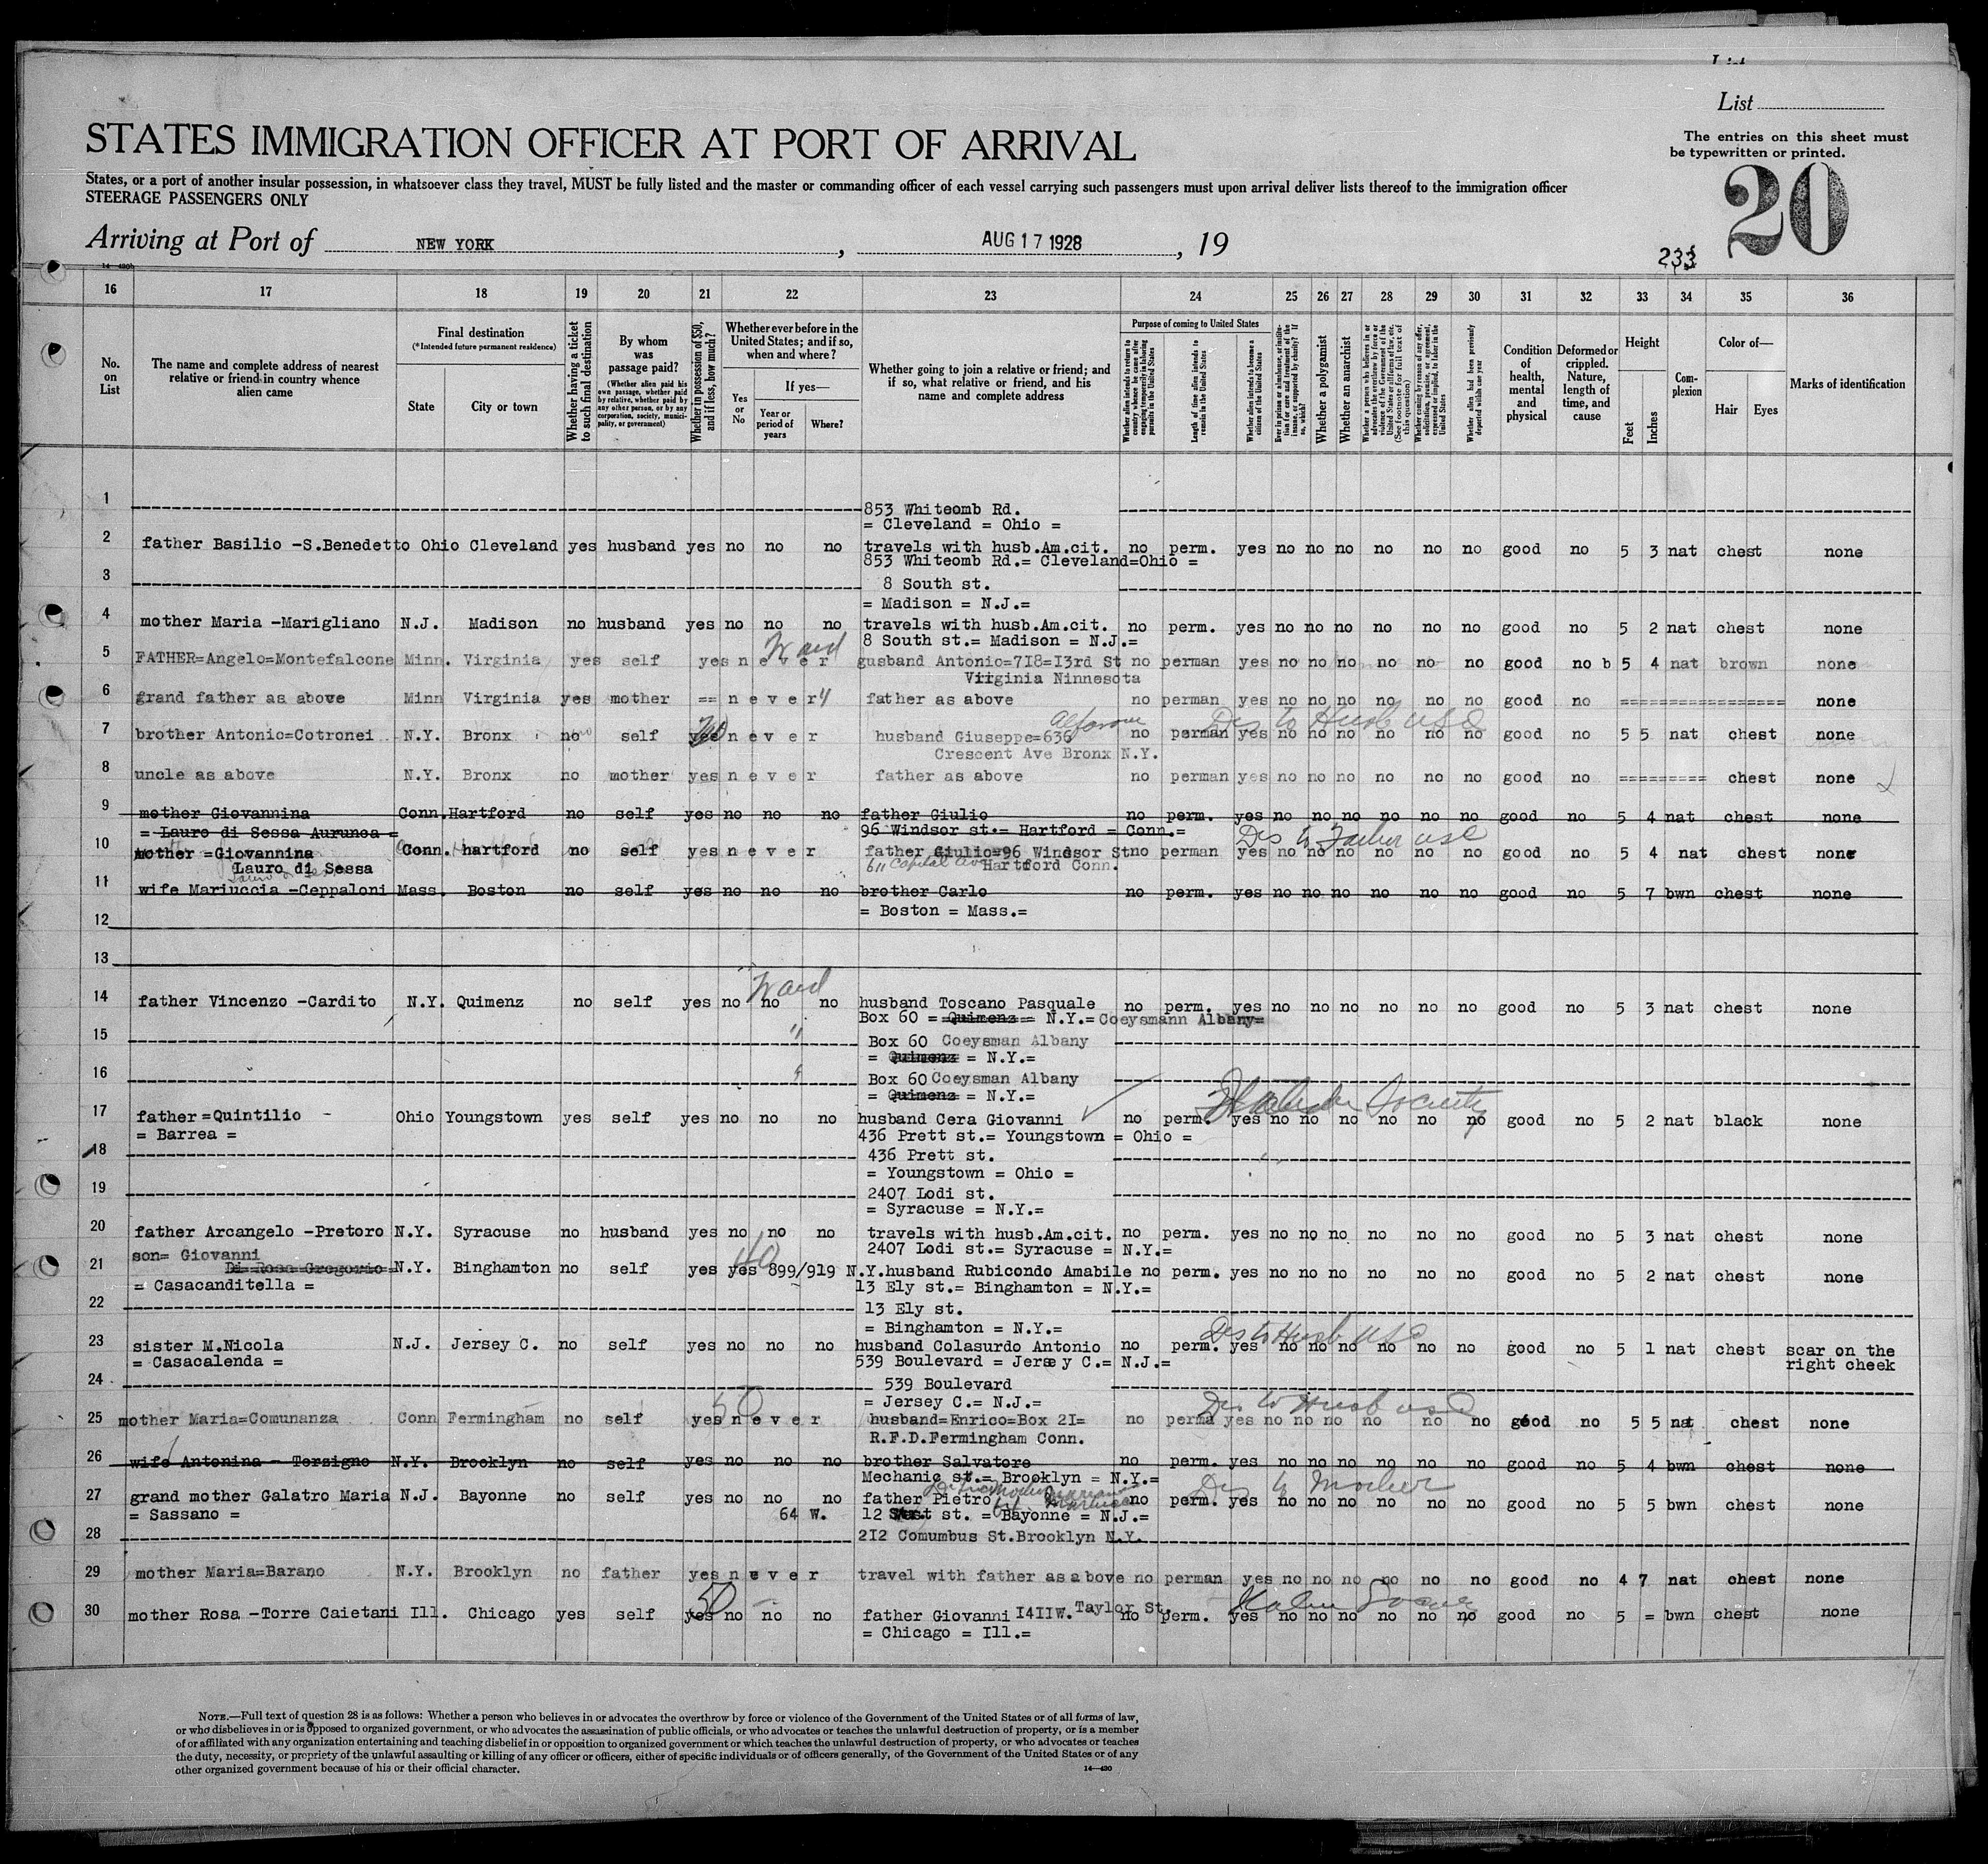 List
STATES IMMIGRATION OFFICER AT PORT OF ARRIVAL
The entries on this sheet must
be typewritten or printed.
States, or a port of another insular possession, in whatsoever class they travel, MUST be fully listed and the master or commanding officer of each vessel carrying such passengers must upon arrival deliver lists thereof to the immigration officer
STEERAGE PASSENGERS ONLY
20
Arriving at Port of NEW YORK, AUG 17 1928, 19
233
16 17 18 19 20 21 22 23 24 25 26 27 28 29 30 31 32 33 34 35 36
No. on List
The name and complete address of nearest relative or friend in country whence alien came
Final destination
(*Intended future permanent residence)
State
City or town
Whether having a ticket to such final destination
By whom was passage paid?
(Whether alien paid his own passage, whether paid by relative, whether paid by any other person, or by any corporation, society, municipality, or government)
Whether in possession of $50, and if less, how much?
Whether ever before in the United States; and if so, when and where?
Yes or No
If yes—
Year or period of years
Where?
Whether going to join a relative or friend; and if so, what relative or friend, and his name and complete address
Purpose of coming to United States
Whether alien intends to return to country whence he came after engaging temporarily in laboring pursuits in the United States
Length of time alien intends to remain in the United States
Whether alien intends to become a citizen of the United States
Ever in prison or almshouse, or institution for care and treatment of the insane, or supported by charity? If so, which?
Whether a polygamist
Whether an anarchist
Whether a person who believes in or advocates the overthrow by force or violence of the Government of the United States or all forms of law, etc. (See footnote for full text of this question)
Whether coming by reason of any offer, solicitation, promise, or agreement, expressed or implied, to labor in the United States
Whether alien had been previously deported within one year
Condition of health, mental and physical
Deformed or crippled. Nature, length of time, and cause
Height
Feet
Inches
Complexion
Color of—
Hair
Eyes
Marks of identification
1 853 Whiteomb Rd.
= Cleveland = Ohio =
2 father Basilio -S.Benedetto Ohio Cleveland yes husband yes no no no travels with husb.Am.cit. no perm. yes no no no no no no good no 5 3 nat chest none
853 Whiteomb Rd.= Cleveland=Ohio =
3 8 South st.
= Madison = N.J.=
4 mother Maria -Marigliano N.J. Madison no husband yes no no no travels with husb.Am.cit. no perm. yes no no no no no no good no 5 2 nat chest none
8 South st.= Madison = N.J.=
Ward
5 FATHER=Angelo=Montefalcone Minn. Virginia yes self yes n e v e r gusband Antonio=7I8=I3rd St no perman yes no no no no no no good no b 5 4 nat brown none
Virginia Ninnesota
6 grand father as above Minn Virginia yes mother == n e v e r " father as above no perman yes no no no no no no good no ================ none
Des to Husb USC
7 brother Antonio=Cotronei N.Y. Bronx no self yes n e v e r husband Giuseppe=636 no perman yes no no no no no no good no 5 5 nat chest none
Crescent Ave Bronx N.Y.
8 uncle as above N.Y. Bronx no mother yes n e v e r father as above no perman yes no no no no no no good no ========= chest none
9 mother Giovannina Conn. Hartford no self yes no no no father Giulio no perm. yes no no no no no no good no 5 4 nat chest none
= Lauro di Sessa Aurunca = 96 Windsor st.= Hartford = Conn.=
Des to Father USC
10 mother =Giovannina Conn. hartford no self yes n e v e r father Giulio=96 Windsor St no perman yes no no no no no no good no 5 4 nat chest none
Lauro di Sessa 611 Capital Ave Hartford Conn.
11 wife Mariuccia -Ceppaloni Mass. Boston no self yes no no no brother Carlo no perm. yes no no no no no no good no 5 7 bwn chest none
= Boston = Mass.=
12
13
Ward
14 father Vincenzo -Cardito N.Y. Quimenz no self yes no no no husband Toscano Pasquale no perm. yes no no no no no no good no 5 3 nat chest none
Box 60 = Quimenz = N.Y.= Coeysmann Albany=
15 " Box 60 Coeysman Albany
= Quimenz = N.Y.=
16 " Box 60 Coeysman Albany
= Quimenz = N.Y.=
Society
17 father =Quintilio - Ohio Youngstown yes self yes no no no husband Cera Giovanni no perm. yes no no no no no no good no 5 2 nat black none
= Barrea = 436 Prett st.= Youngstown = Ohio =
18 436 Prett st.
= Youngstown = Ohio =
19 2407 Lodi st.
= Syracuse = N.Y.=
20 father Arcangelo -Pretoro N.Y. Syracuse no husband yes no no no travels with husb.Am.cit. no perm. yes no no no no no no good no 5 3 nat chest none
2407 Lodi st.= Syracuse = N.Y.=
son= Giovanni
21 Di Rosa Gregorio= N.Y. Binghamton no self yes yes 899/919 N.Y. husband Rubicondo Amabile no perm. yes no no no no no no good no 5 2 nat chest none
= Casacanditella = 13 Ely st.= Binghamton = N.Y.=
22 13 Ely st.
= Binghamton = N.Y.=
Des to Husb USC
23 sister M.Nicola N.J. Jersey C. no self yes no no no husband Colasurdo Antonio no perm. yes no no no no no no good no 5 1 nat chest scar on the
= Casacalenda = 539 Boulevard = Jersey C.= N.J.= right cheek
24 539 Boulevard
= Jersey C.= N.J.=
50 Des to Husb USC
25 mother Maria=Comunanza Conn Fermingham no self yes n e v e r husband=Enrico=Box 2I= no perma yes no no no no no no good no 5 5 nat chest none
R.F.D.Fermingham Conn.
26 wife Antonina - Terzigno N.Y. Brooklyn no self yes no no no brother Salvatore no perm. yes no no no no no no good no 5 4 bwn chest none
Mechanic st.= Brooklyn = N.Y.=
Des to Mother
27 grand mother Galatro Maria N.J. Bayonne no self yes no no no father Pietro no perm. yes no no no no no no good no 5 5 bwn chest none
= Sassano = 64 W. 12 st. = Bayonne = N.J.=
28 2I2 Comumbus St.Brooklyn N.Y.
29 mother Maria=Barano N.Y. Brooklyn no father yes n e v e r travel with father as above no perman yes no no no no no no good no 4 7 nat chest none
50
30 mother Rosa -Torre Caietani Ill. Chicago yes self yes no no no father Giovanni I4IIW. Taylor St. no perm. yes no no no no no no good no 5 = bwn chest none
= Chicago = Ill.=
NOTE.—Full text of question 28 is as follows: Whether a person who believes in or advocates the overthrow by force or violence of the Government of the United States or of all forms of law,
or who disbelieves in or is opposed to organized government, or who advocates the assassination of public officials, or who advocates or teaches the unlawful destruction of property, or is a member
of or affiliated with any organization entertaining and teaching disbelief in or opposition to organized government or which teaches the unlawful destruction of property, or who advocates or teaches
the duty, necessity, or propriety of the unlawful assaulting or killing of any officer or officers, either of specific individuals or of officers generally, of the Government of the United States or of any
other organized government because of his or their official character.
14—420